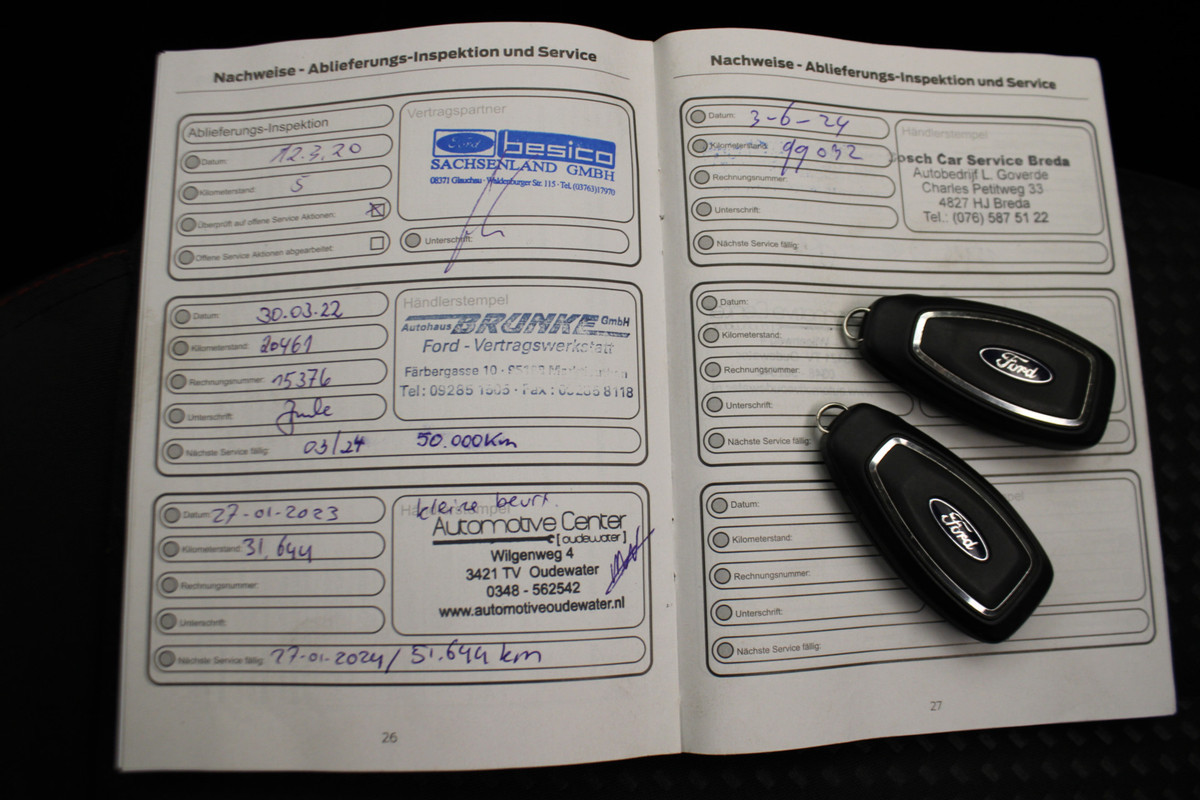 Nachweise - Ablieferungs-Inspektion und Service
Ablieferungs-Inspektion
Datum: 12.3.20
Kilometerstand: 5
Überprüft auf offene Service Aktionen:
Offene Service Aktionen abgearbeitet:
Vertragspartner
Ford besico
SACHSENLAND GMBH
08371 Glauchau · Waldenburger Str. 115 · Tel. (03763)17970
Unterschrift:
Datum: 30.03.22
Kilometerstand: 20461
Rechnungsnummer: 15376
Unterschrift:
Nächste Service fällig: 03/24 50.000Km
Händlerstempel
Autohaus BRUNKE GmbH
Ford - Vertragswerkstatt
Färbergasse 10
Tel: 09286 Fax: 8118
Datum: 27-01-2023
Kilometerstand: 31.644
Rechnungsnummer:
Unterschrift:
Nächste Service fällig: 27-01-2024 / 51.644 km
Händlerstempel
kleine beurt.
Automotive Center
[oudewater]
Wilgenweg 4
3421 TV Oudewater
0348 - 562542
www.automotiveoudewater.nl
26
Nachweise - Ablieferungs-Inspektion und Service
Datum: 3-6-24
Kilometerstand: 99032
Rechnungsnummer:
Unterschrift:
Nächste Service fällig:
Händlerstempel
Bosch Car Service Breda
Autobedrijf L. Goverde
Charles Petitweg 33
4827 HJ Breda
Tel.: (076) 587 51 22
Datum:
Kilometerstand:
Rechnungsnummer:
Unterschrift:
Nächste Service fällig:
Ford
Datum:
Kilometerstand:
Rechnungsnummer:
Unterschrift:
Nächste Service fällig:
Ford
27